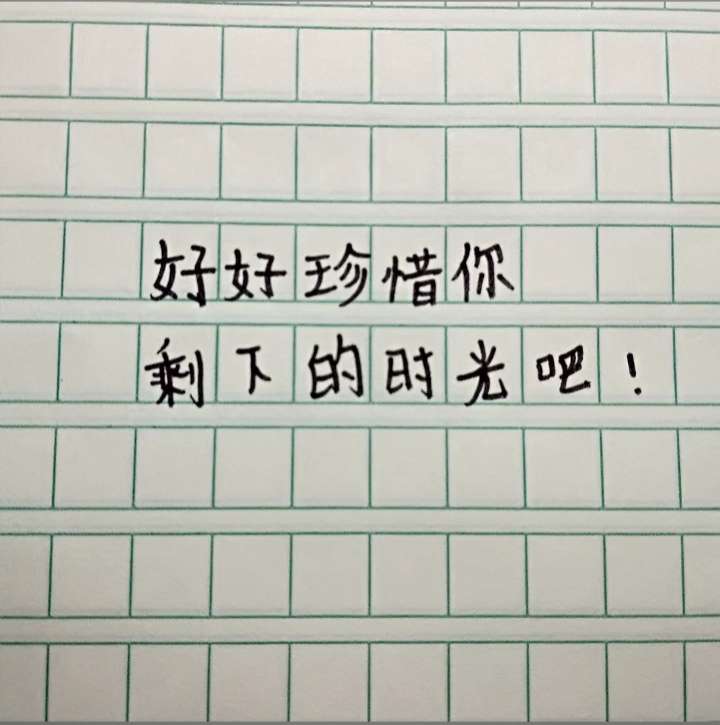 好好珍惜你
剩下的时光吧！